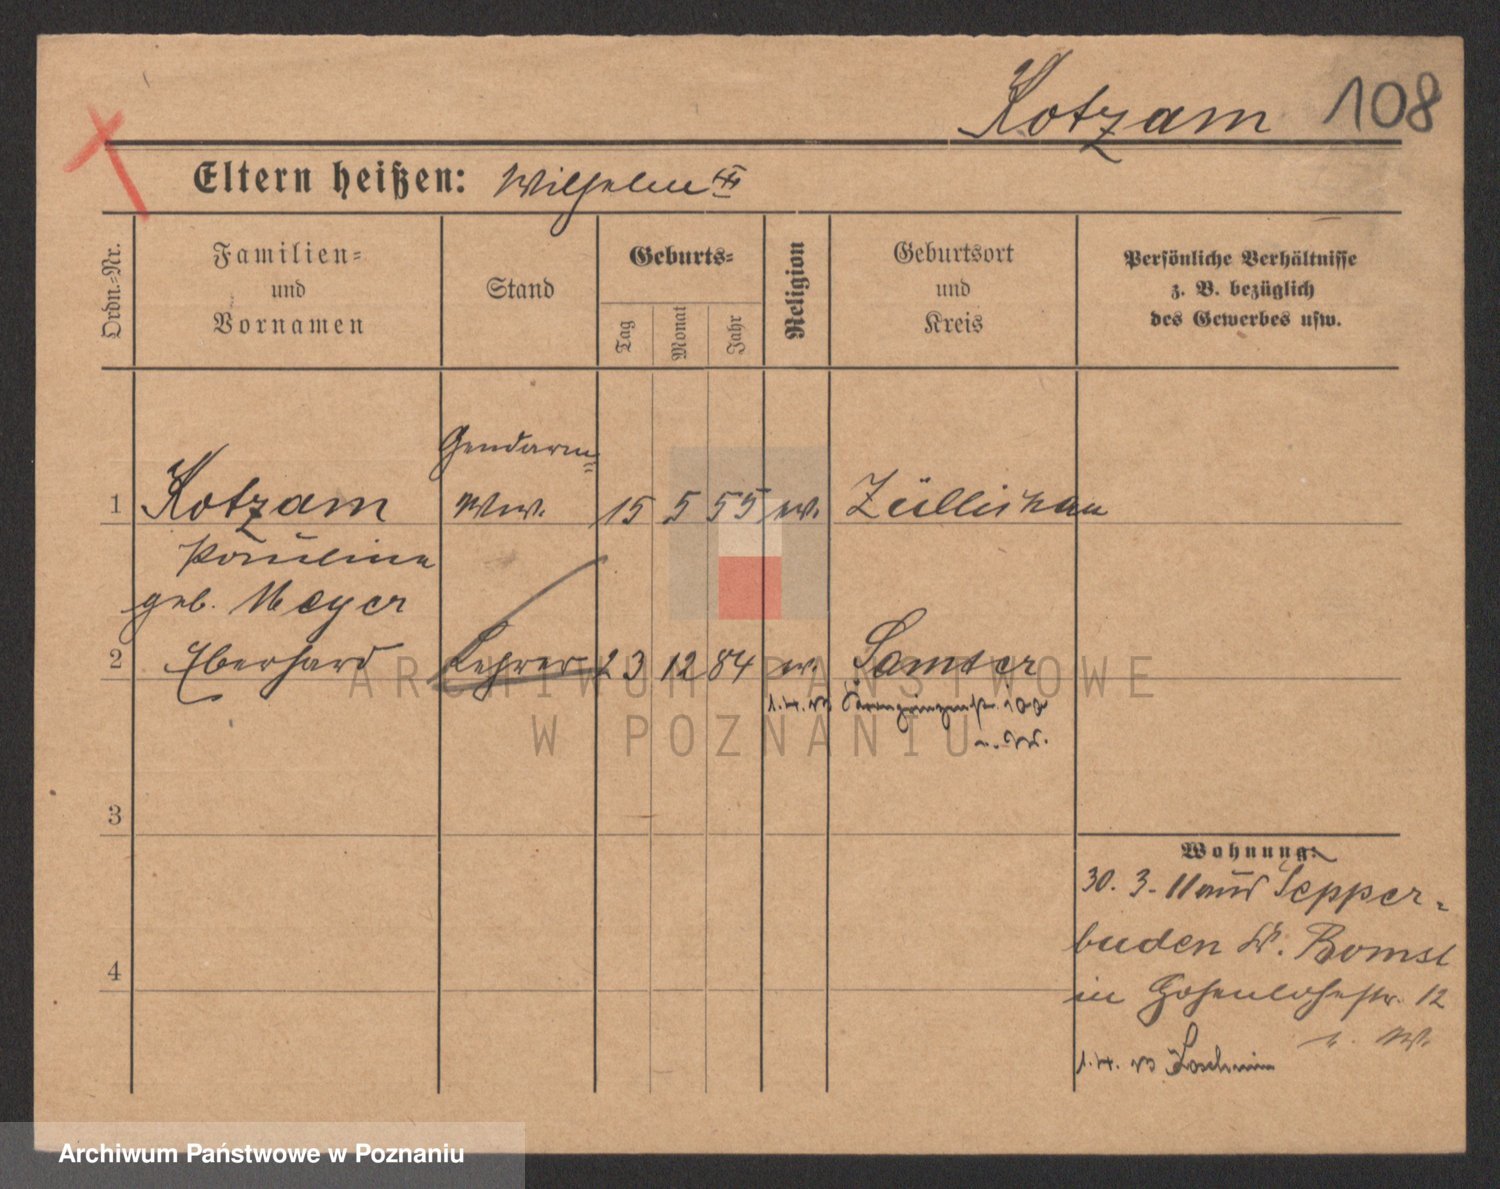 Kotzam 108
Eltern heißen: Wilhelm
Ordn.-Nr.
Familien-
und
Vornamen
Stand
Geburts-
Tag
Monat
Jahr
Religion
Geburtsort
und
Kreis
Persönliche Verhältnisse
z. B. bezüglich
des Gewerbes usw.
Gendarm=
1 Kotzam Ww. 15 5 55 ev. Züllichau
Pauline
geb. Meyer
2 Eberhard Lehrer 23 12 84 ev. Samter
ARCHIWUM PAŃSTWOWE
W POZNANIU
3
Wohnung:
30. 3. 11 aus Tepper-
buden Kr. Bomst
4
in Hohenlohestr. 12
1. 4. 13
Archiwum Państwowe w Poznaniu